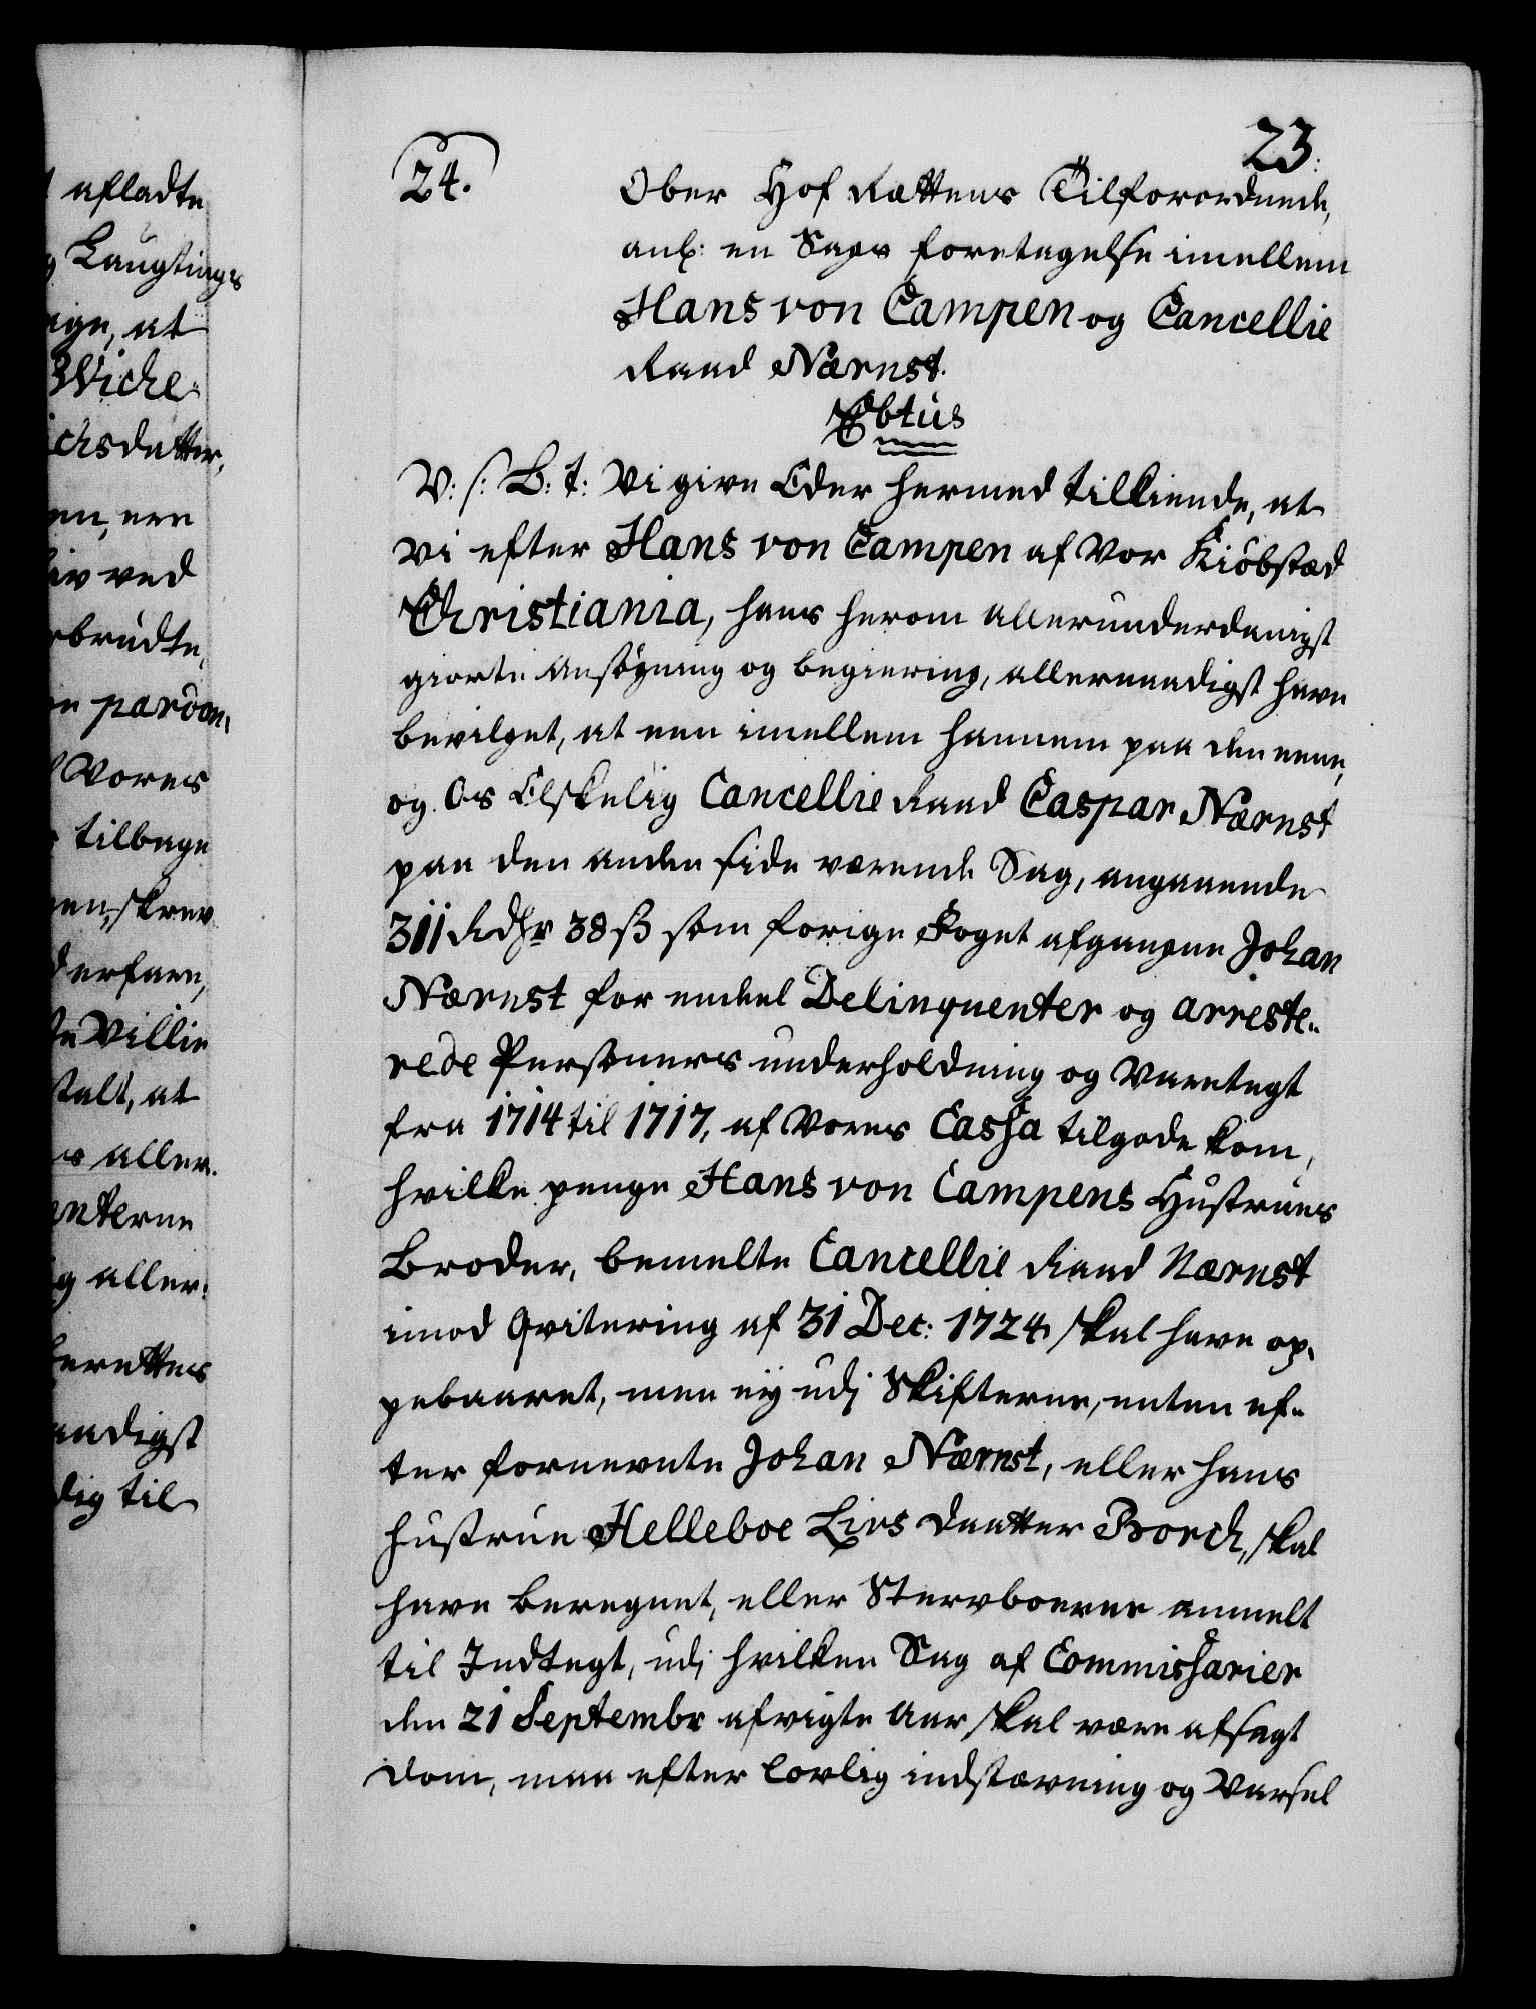 afladte
Laugtinges
at
Wiche-
ichsdatter,
en, een
ved
rbrudte,
pardon,
Vores
tilbage
skrev
derfare,
Villie
stalt, at
aller-
enterne
og aller-
berettes
naadigst
dig til
23.
24.
Ober Hof Rættens Tilforordnede,
anl: en Sags foretagelse imellem
Hans von Campen og Cancellie
Raad Nærnst.
Chtus
V: s: B: t: Vi give Eder hermed tilkiende, at
Vi efter Hans von Campen af Vor Kiöbstæd
Christiania, hans herom allerunderdanigst
giorte Ansögning og begiering, allernaadigst have
bevilget, at een imellem hannem paa den eene,
og Os Elskelig Cancellie Raad Caspar Nærnst
paa den anden side værende Sag, angaaende
311 Rdlr 38 ß som forige Foget afgangne Johan
Nærnst for endeel Delinquenter og arreste-
rede Persohners underholdning og Varetegt
fra 1714 til 1717, af Vores Cassa tilgode kom,
hvilke penge Hans von Campens Hustrues
Broder, bemelte Cancellie Raad Nærnst
imod Qvitering af 31 Dec: 1724 skal have op-
pebaaret, men ey udj Skifterne, enten ef-
ter fornevnte Johan Nærnst, eller hans
hustrue Helleboe Livs Daatter Borch, skal
have beregnet, eller Stervboerne anmelt
til Indtegt, udj hvilken Sag af Commissarier
den 21 Septembr afvigte Aar skal være afsagt
dom, maa efter lovlig indstævning og Varsel